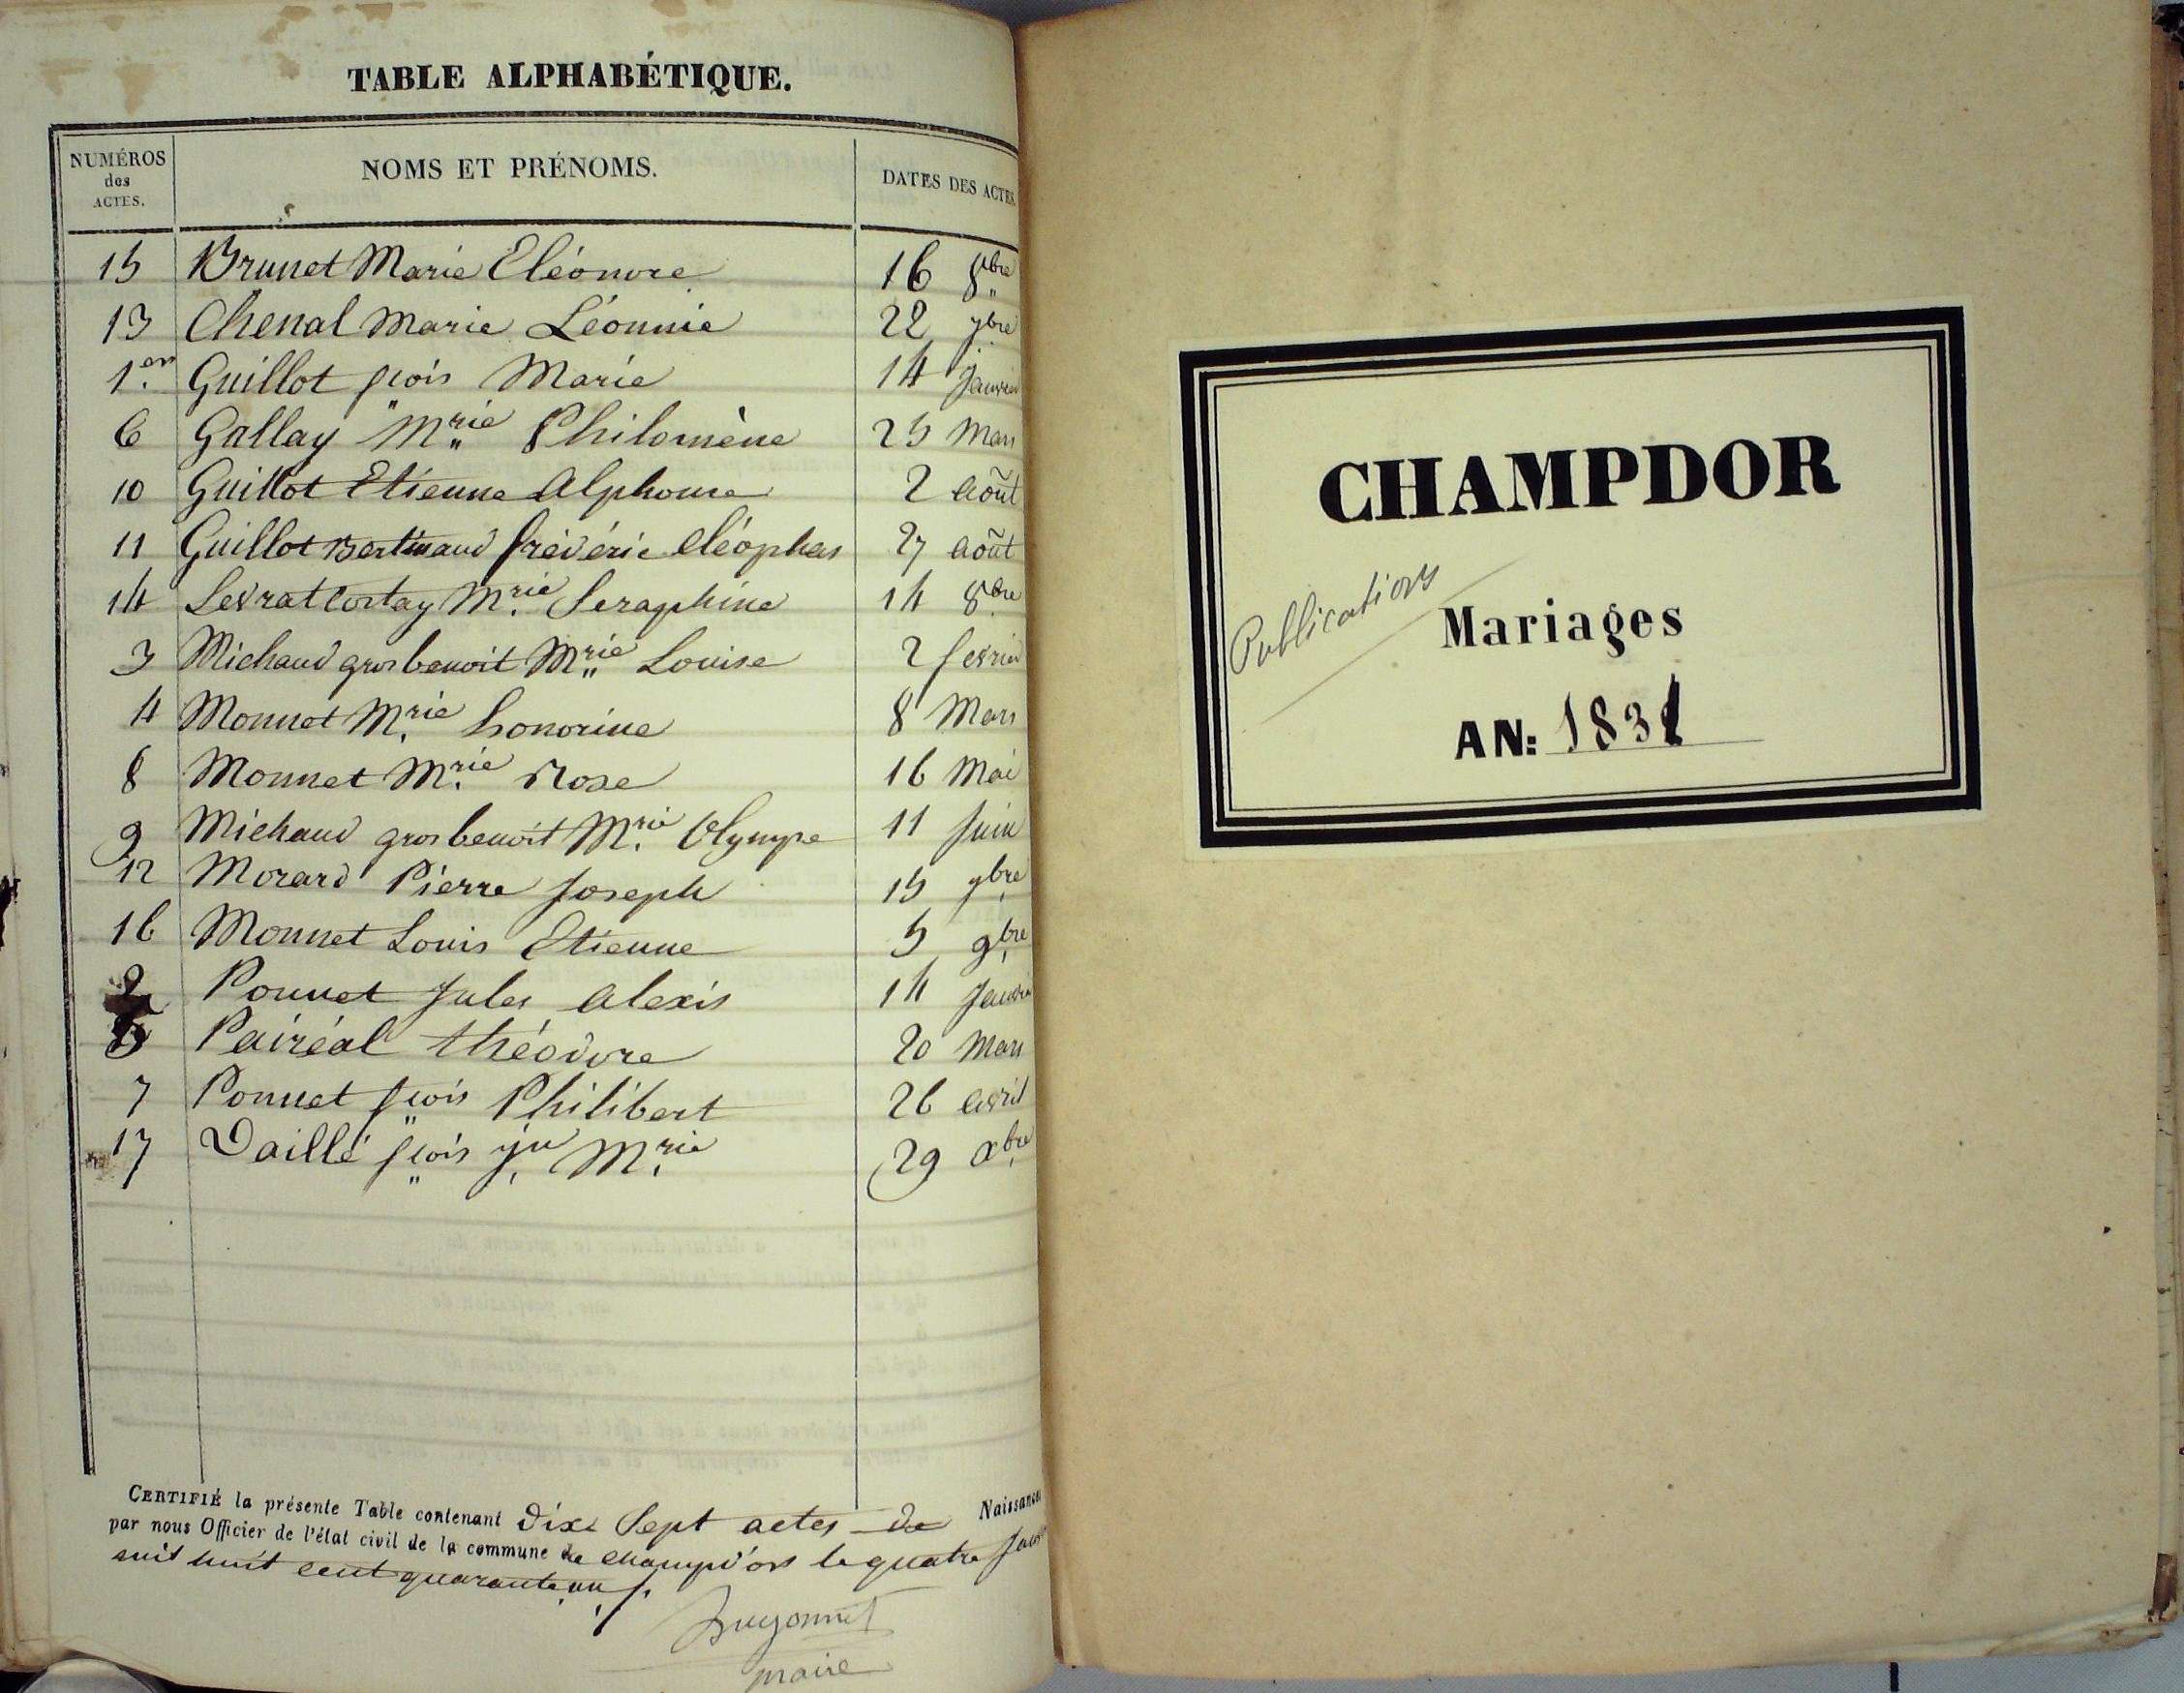 TABLE ALPHABÉTIQUE.
NUMÉROS des ACTES. NOMS ET PRÉNOMS. DATES DES ACTES
15 Brunet Marie Eléonore 16 8bre
13 Chenal Marie Léonnie 22 7bre
1.er Guillot fçois Marie 14 Janvier
6 Gallay Mrie Philomène 25 Mars
10 Guillot Etienne Alphonse 2 Août
11 Guillot Bertinand frédéric Cléophas 27 Août
14 Levrat Costay Mrie Seraphine 14 8bre
3 Michaud gros benoit Mrie Louise 2 fevrier
4 Monnet Mrie honorine 8 Mars
8 Monnet Mrie Rose 16 Mai
9 Michaud gros benoit Mrie Olympe 11 Juin
12 Morard Pierre Joseph 15 7bre
16 Monnet Louis Etienne 5 9bre
2 Ponnet Jules Alexis 14 Janvier
5 Pairéal théodore 20 Mars
7 Ponnet fçois Philibert 26 avril
17 Daillé fçois jn Mrie 29 Xbre
CERTIFIÉ la présente Table contenant Dix Sept actes de Naissances
par nous Officier de l'état civil de la commune de Champd'or le quatre Jan
huit cent quarante un
maire
CHAMPDOR
Publications
Mariages
AN: 1831